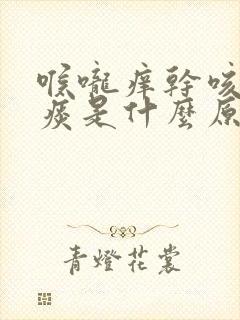 喉嚨痒幹咳
痰是什麼原
青燈花裳